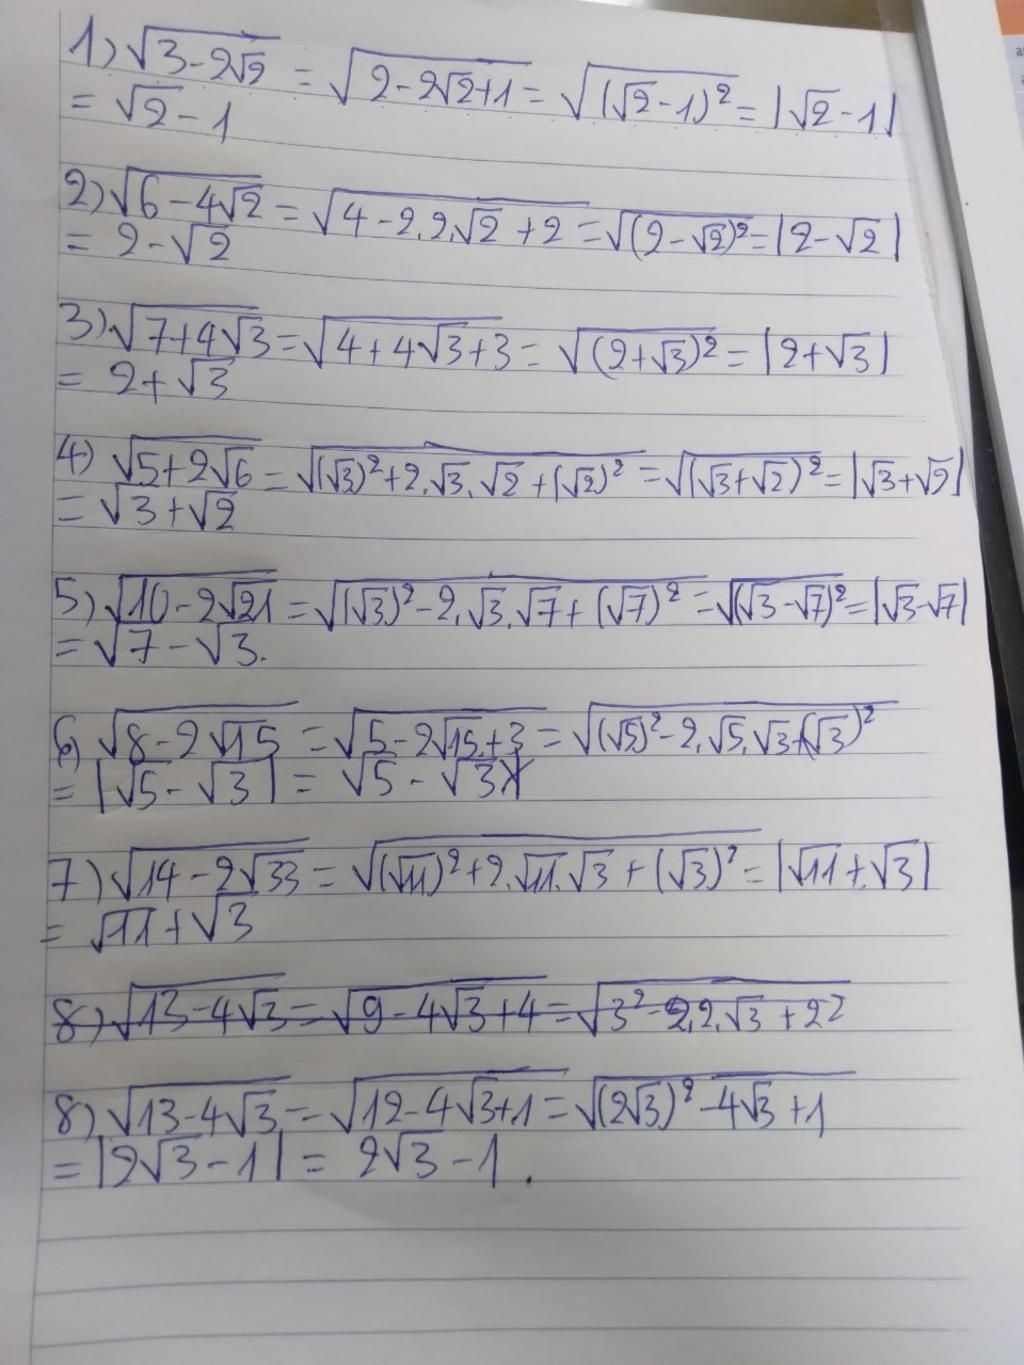 1) √(3-2√2) = √(2-2√2+1) = √((√2-1)²) = |√2-1|
= √2-1
2) √(6-4√2) = √(4-2.2.√2+2) = √((2-√2)²) = |2-√2|
= 2-√2
3) √(7+4√3) = √(4+4√3+3) = √((2+√3)²) = |2+√3|
= 2+√3
4) √(5+2√6) = √((√3)²+2.√3.√2+(√2)²) = √((√3+√2)²) = |√3+√2|
= √3+√2
5) √(10-2√21) = √((√3)²-2.√3.√7+(√7)²) = √((√3-√7)²) = |√3-√7|
= √7-√3.
6) √(8-2√15) = √(5-2√15+3) = √((√5)²-2.√5.√3+(√3)²)
= |√5-√3| = √5-√3
7) √(14-2√33) = √((√11)²+2.√11.√3+(√3)²) = |√11+√3|
= √11+√3
8) √(13-4√3) = √(9-4√3+4) = √(3²-2.2.√3+2²)
8) √(13-4√3) = √(12-4√3+1) = √((2√3)²-4√3+1)
= |2√3-1| = 2√3-1.